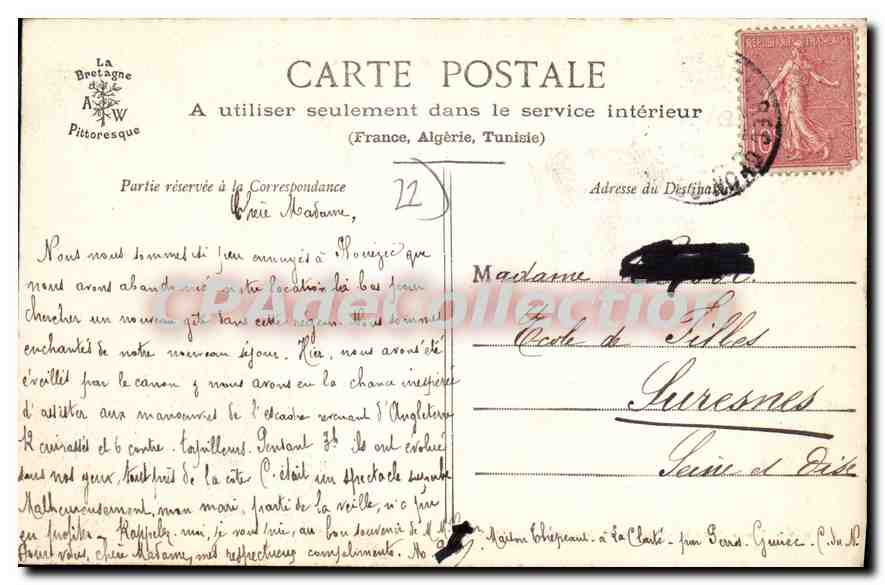 La
Bretagne
A W
Pittoresque
CARTE POSTALE
A utiliser seulement dans le service intérieur
(France, Algérie, Tunisie)
REPUBLIQUE FRANÇAISE
10
Partie réservée à la Correspondance
Adresse du Destinataire
22
Chère Madame,
Nous nous sommes si peu ennuyés à Plouézec que
nous avons abandonné notre location là bas pour
chercher un nouveau gîte dans cette région. Nous sommes
enchantés de notre nouveau séjour. Hier, nous avons été
éveillés par le canon & nous avons eu la chance inespérée
d'assister aux manœuvres de l'escadre revenant d'Angleterre
12 cuirassés et 6 contre-torpilleurs. Pendant 3h ils ont évolué
sous nos yeux, tout près de la côte. C'était un spectacle superbe
Malheureusement, mon mari, parti de la veille, n'a pu
en profiter - Rappelez-moi, je vous prie, au bon souvenir de M.
pour vous, chère Madame, mes respectueux compliments.
Madame
Ecole de Filles
Suresnes
Seine et Oise
Maison Thépeaut - à La Clarté - par Perros-Guirec - C. du N.
CPArteCollection